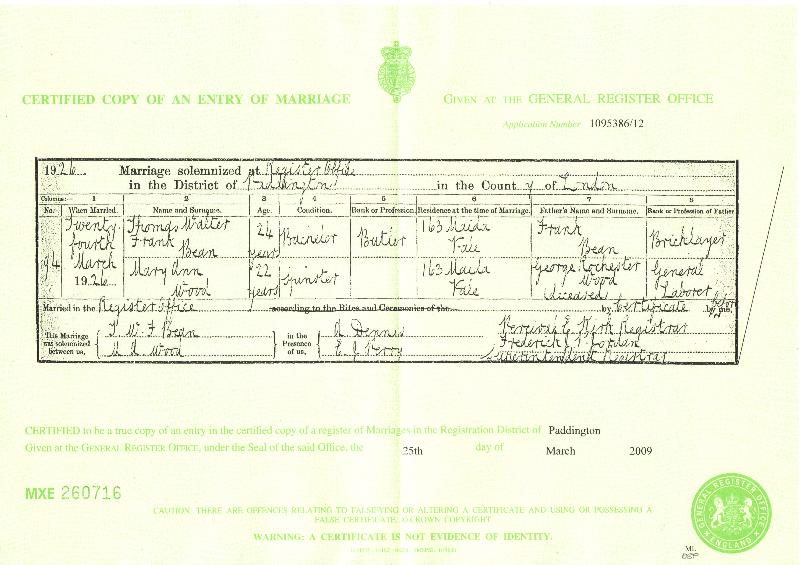 CERTIFIED COPY OF AN ENTRY OF MARRIAGE
GIVEN AT THE GENERAL REGISTER OFFICE
Application Number 1095386/12
1926. Marriage solemnized at Register Office
in the District of Paddington in the County of London
Columns: 1 2 3 4 5 6 7 8
No. When Married. Name and Surname. Age. Condition. Rank or Profession. Residence at the time of Marriage. Father's Name and Surname. Rank or Profession of Father
94 Twenty fourth March 1926
Thomas Walter Frank Bean 24 years Bachelor Butler 163 Maida Vale Frank Bean Bricklayer
Mary Ann Wood 22 years Spinster 163 Maida Vale George Rochester Wood (deceased) General Laborer
Married in the Register Office according to the Rites and Ceremonies of the by Certificate before by me,
This Marriage was solemnized between us, T. W. F. Bean M. A. Wood
in the Presence of us, A Dennis E. J. Perry
Percival E. Kirk Registrar
Frederick J. Jordan
Superintendent Registrar
CERTIFIED to be a true copy of an entry in the certified copy of a register of Marriages in the Registration District of Paddington
Given at the GENERAL REGISTER OFFICE, under the Seal of the said Office, the 25th day of March 2009
MXE 260716
CAUTION: THERE ARE OFFENCES RELATING TO FALSIFYING OR ALTERING A CERTIFICATE AND USING OR POSSESSING A
FALSE CERTIFICATE. © CROWN COPYRIGHT
WARNING: A CERTIFICATE IS NOT EVIDENCE OF IDENTITY.
GENERAL REGISTER OFFICE
ENGLAND